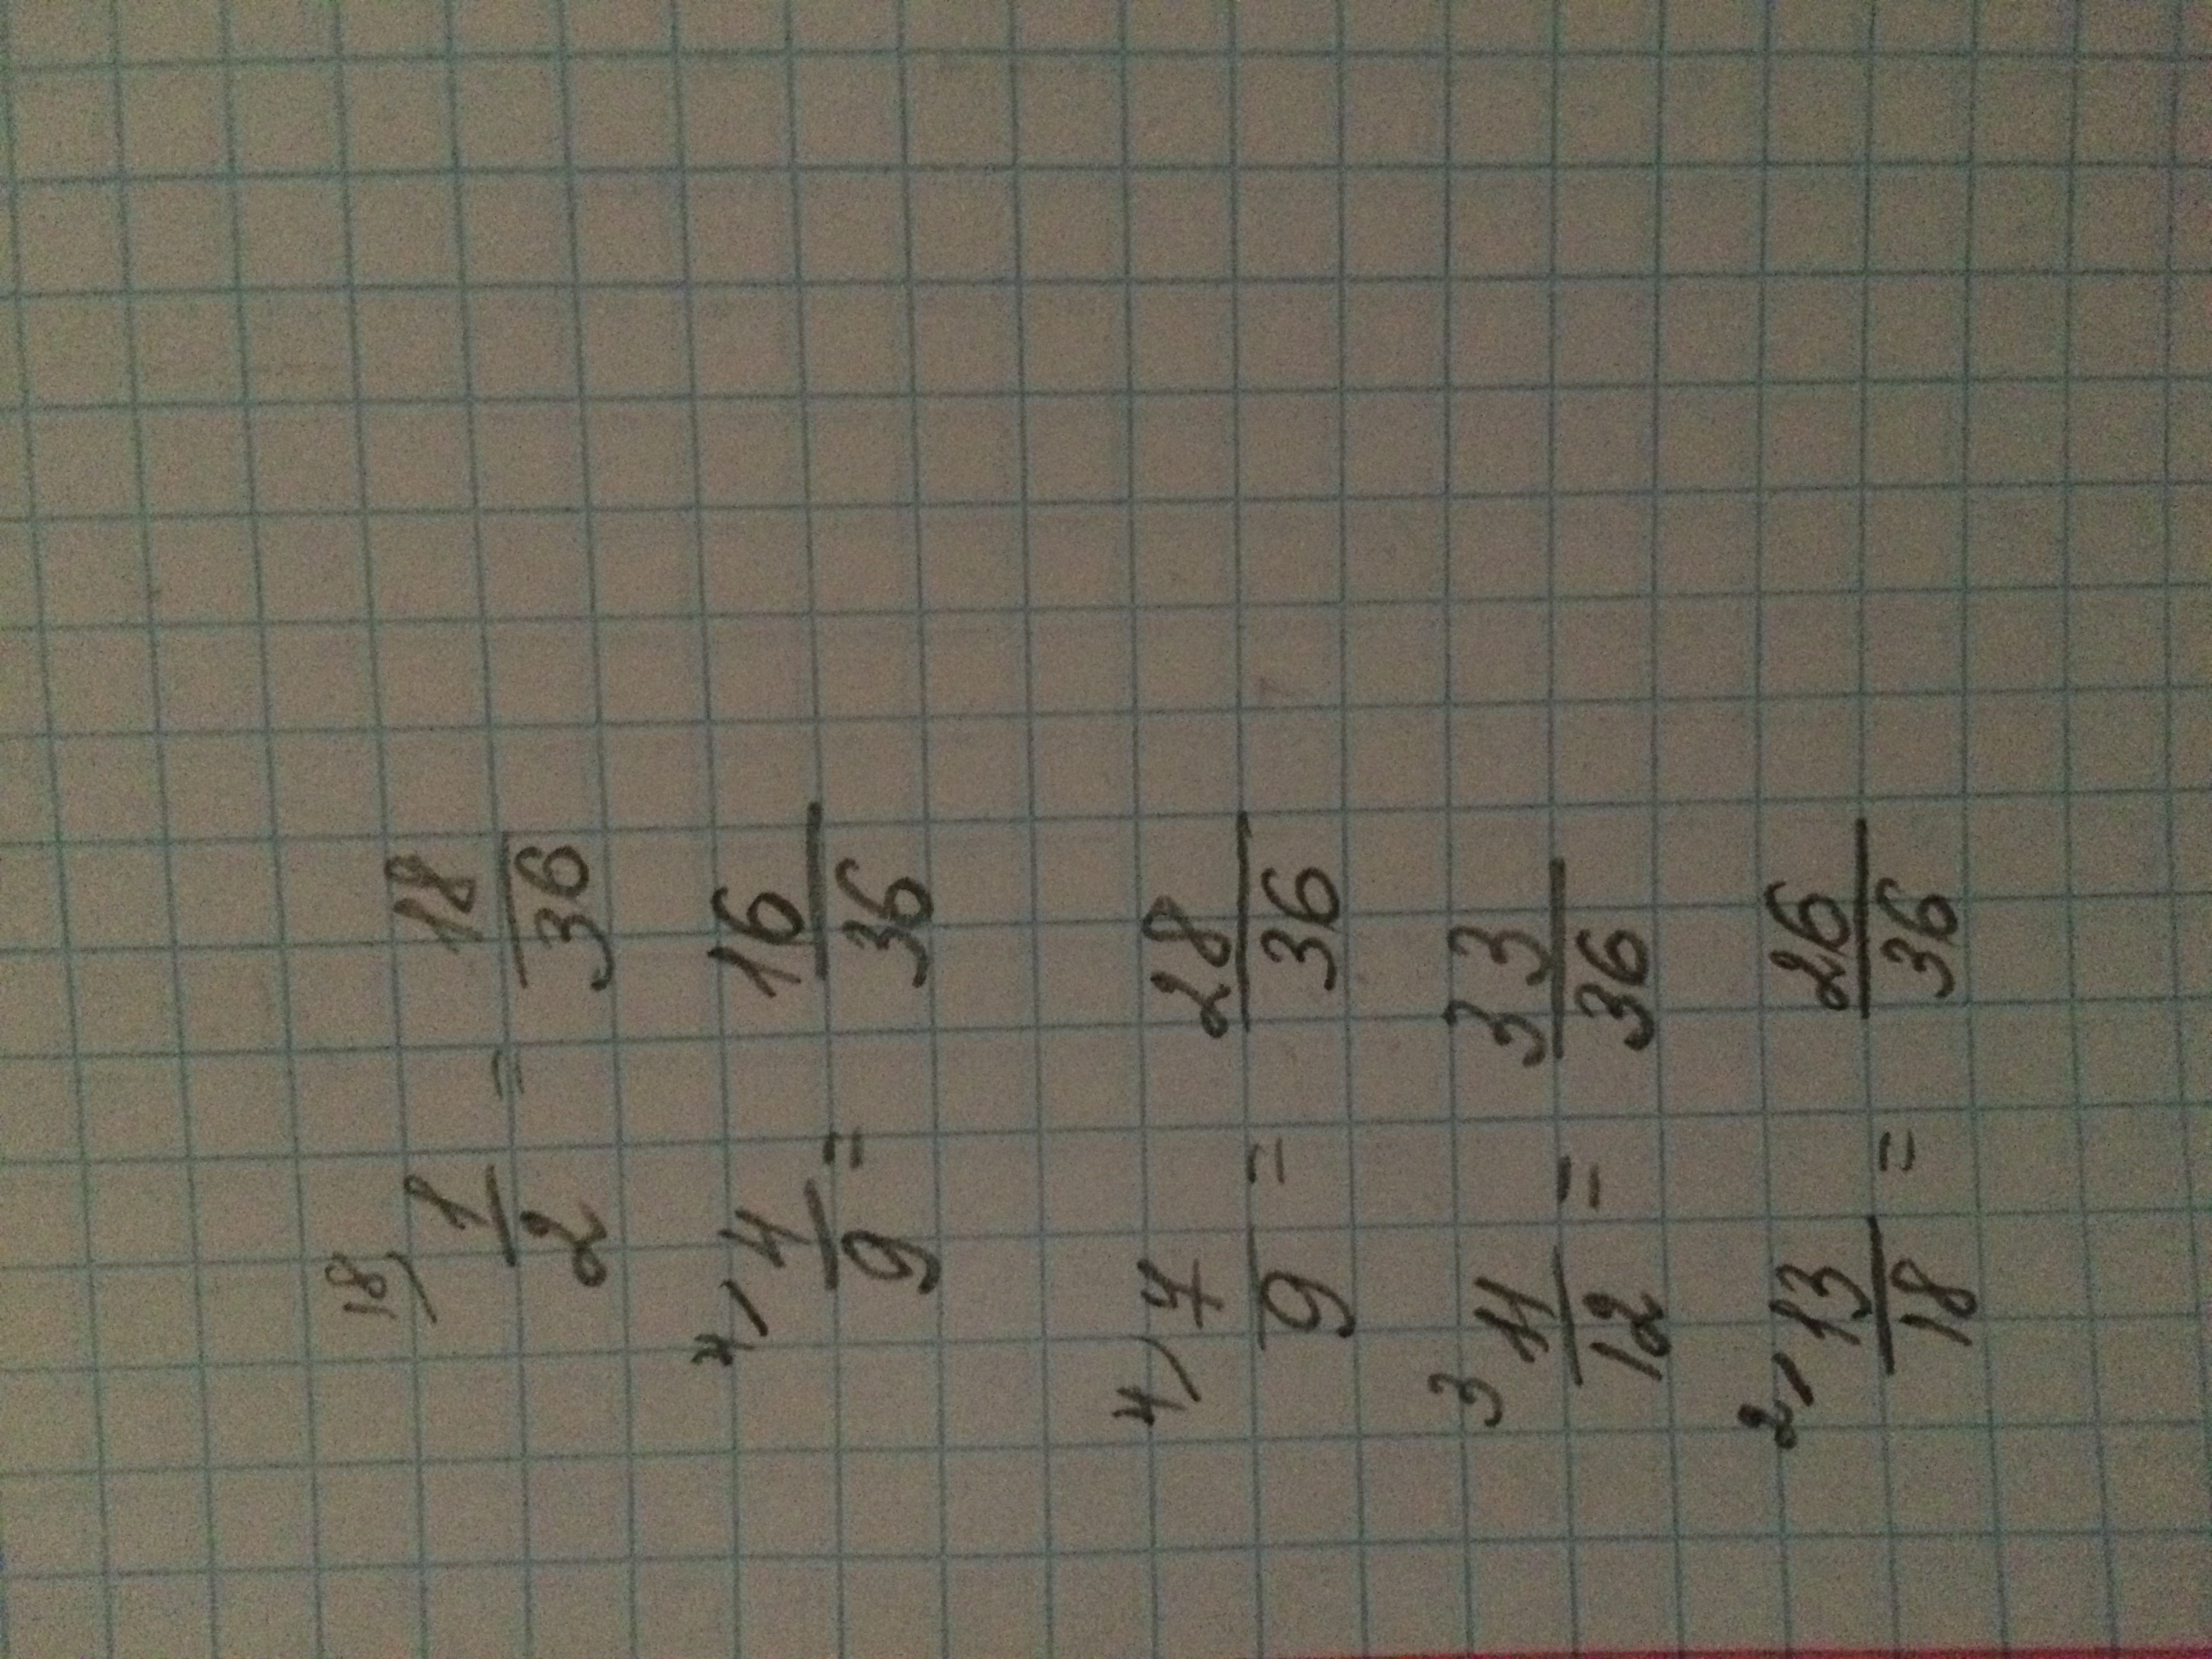 18) 1/2 = 18/36
4) 4/9 = 16/36
4) 7/9 = 28/36
3 11/12 = 33/36
2) 13/18 = 26/36